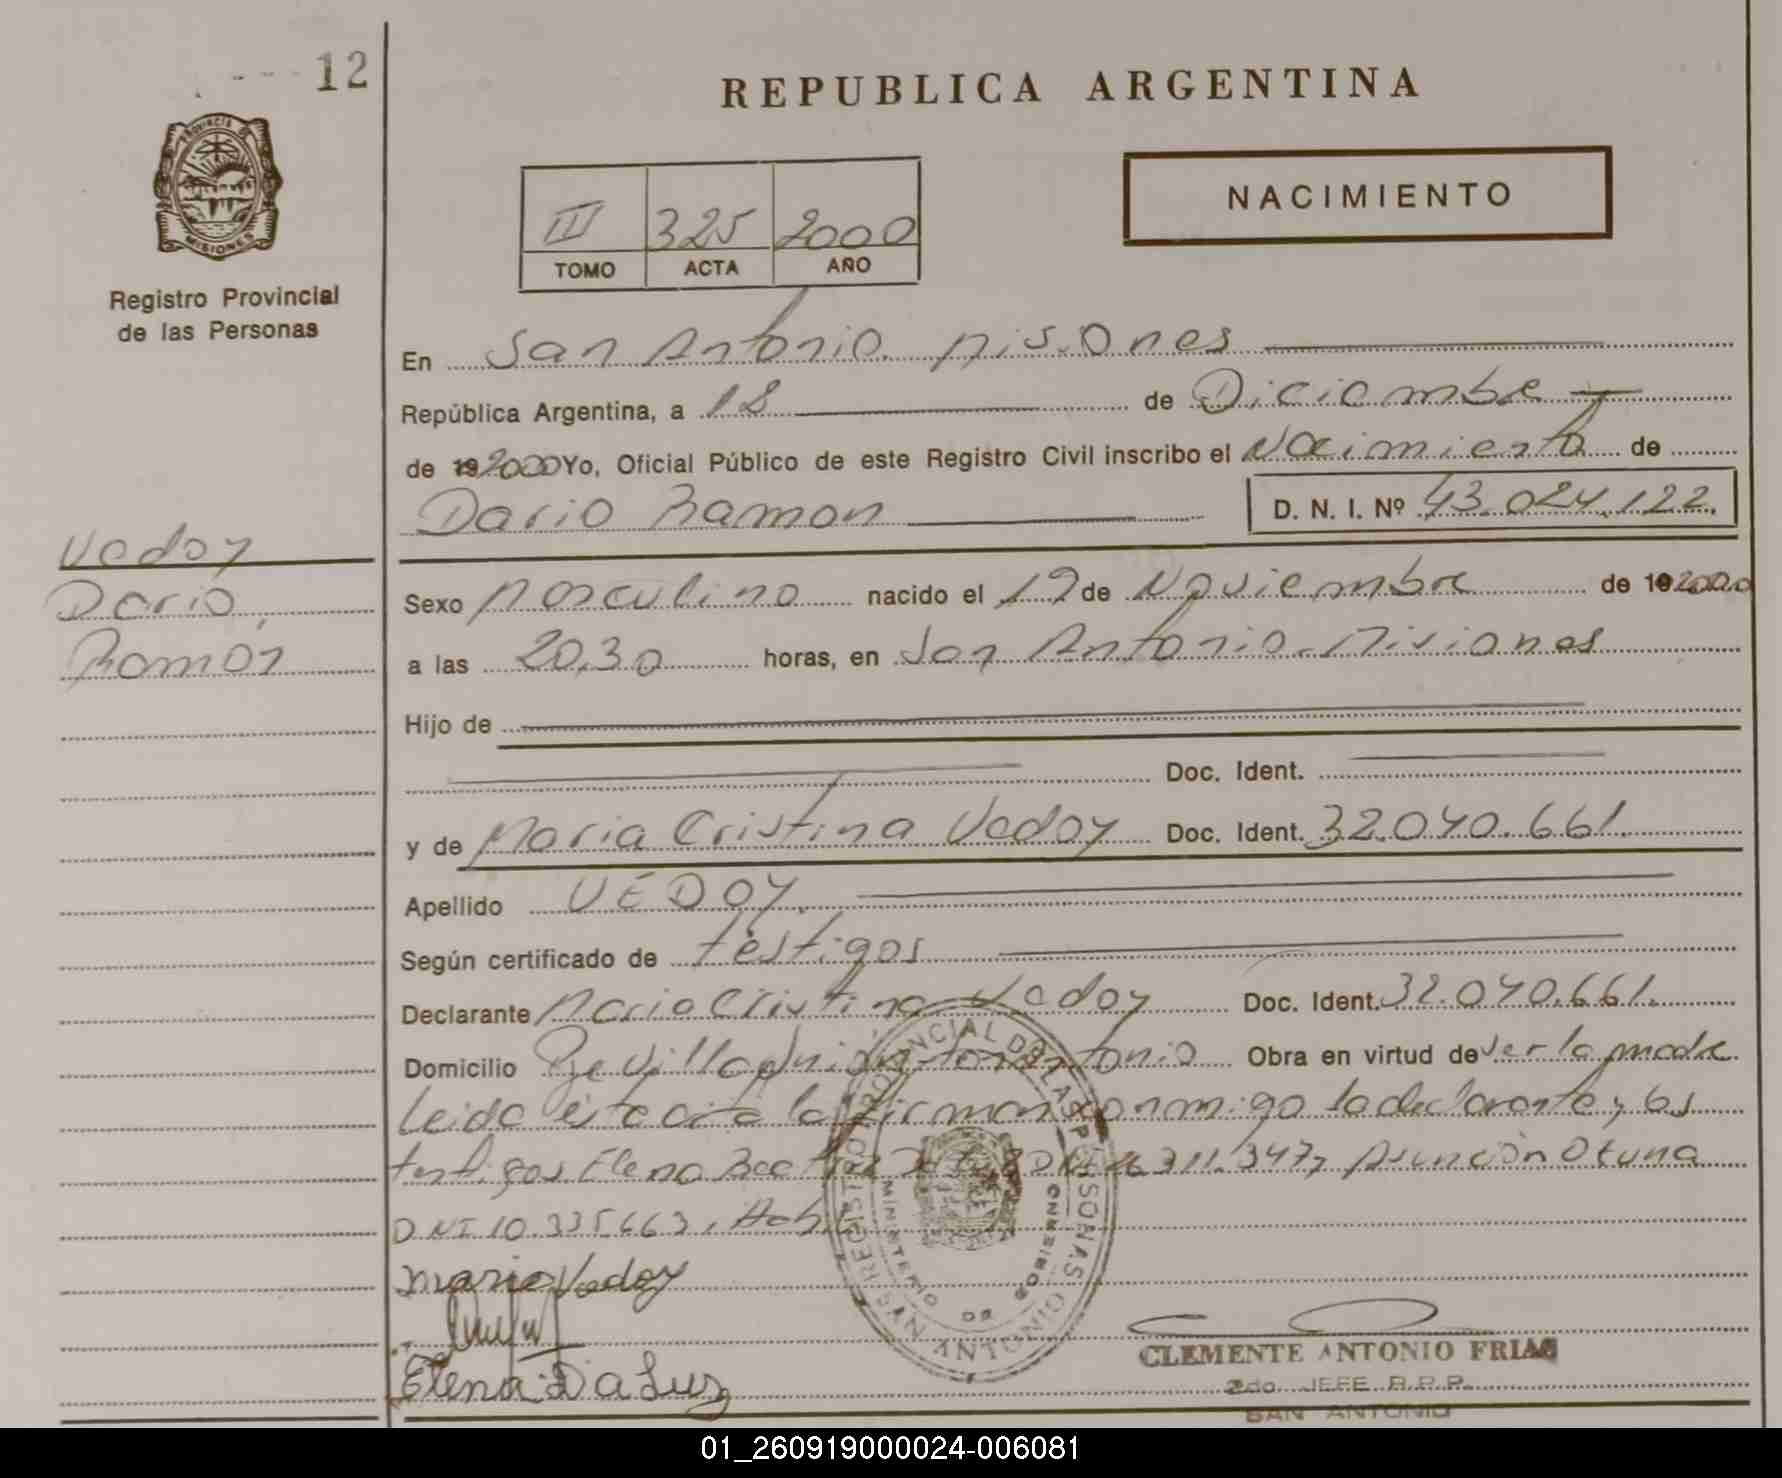 12
REPUBLICA ARGENTINA
PROVINCIA DE
MISIONES
NACIMIENTO
III 325 2000
TOMO ACTA AÑO
Registro Provincial
de las Personas
En San Antonio Misiones
República Argentina, a 18 de Diciembre
de 19 2000 Yo, Oficial Público de este Registro Civil inscribo el Nacimiento de
Dario Ramon D. N. I. Nº 43.024.122.
Vedoy
Dario,
Ramon
Sexo Masculino nacido el 19 de Noviembre de 19 2000
a las 20,30 horas, en San Antonio. Misiones
Hijo de
Doc. Ident.
y de Maria Cristina Vedoy Doc. Ident. 32.040.661.
Apellido VEDOY.
Según certificado de testigos
Declarante Maria Cristina Vedoy Doc. Ident. 32.040.661.
Domicilio Antonio Obra en virtud de ser la madre
Leida el acta la firman conmigo la declarante y los
testigos Elena 347 Asunción Otuna
DNI 10.335.663.
Maria Vedoy
Elena Da Luz
REGISTRO PROVINCIAL DE LAS PERSONAS
MINISTERIO DE GOBIERNO
CLEMENTE ANTONIO FRIAS
2do. JEFE R.P.P.
SAN ANTONIO
01_260919000024-006081